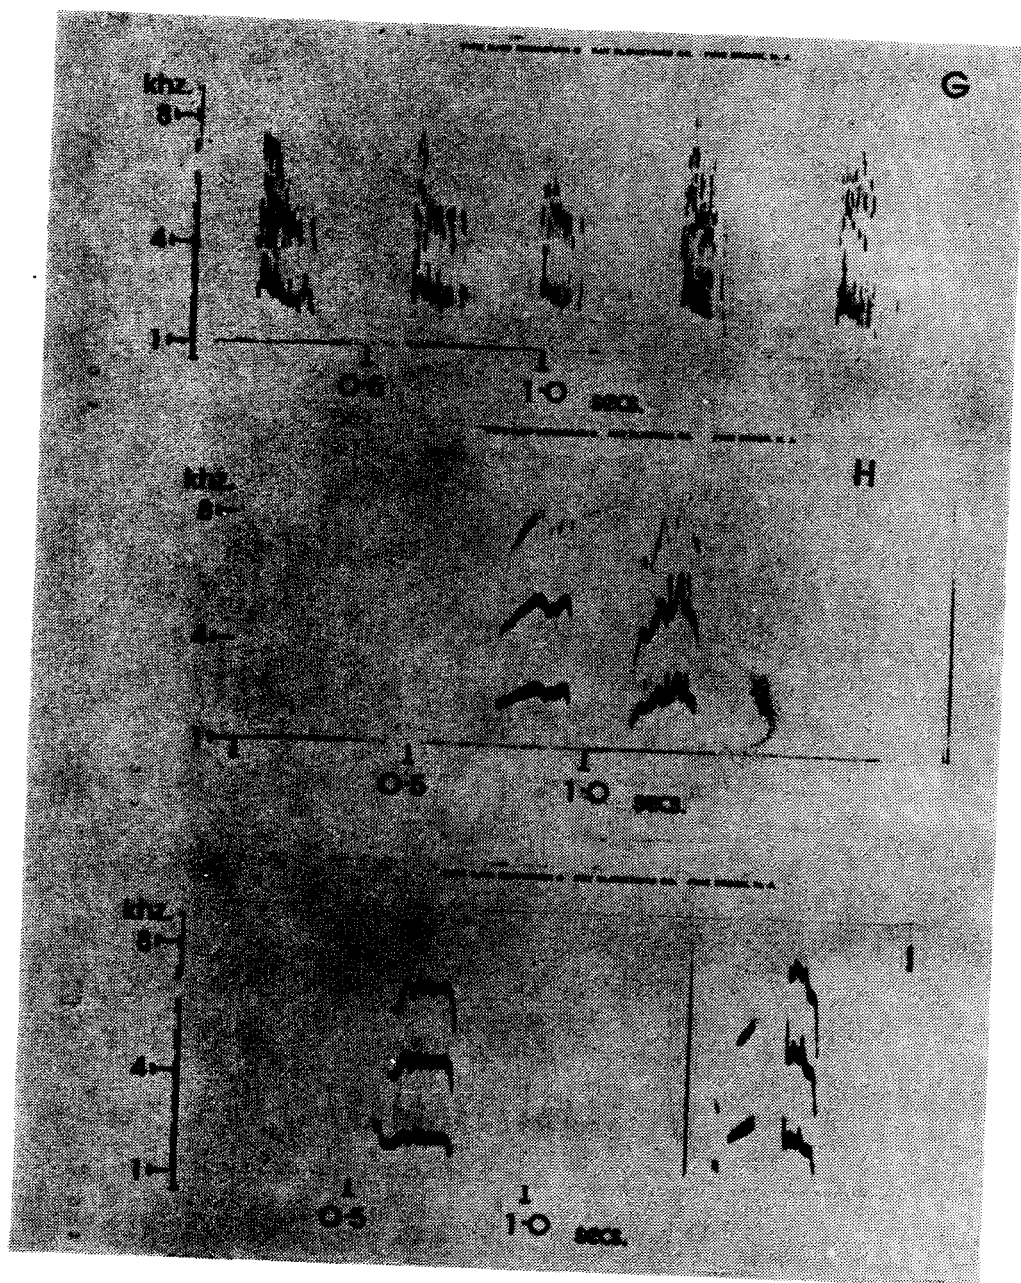 khz. G
8
4
1
0·5 1·0 secs.
khz. H
8
4
1
0·5 1·0 secs.
khz. I
8
4
1
0·5 1·0 secs.